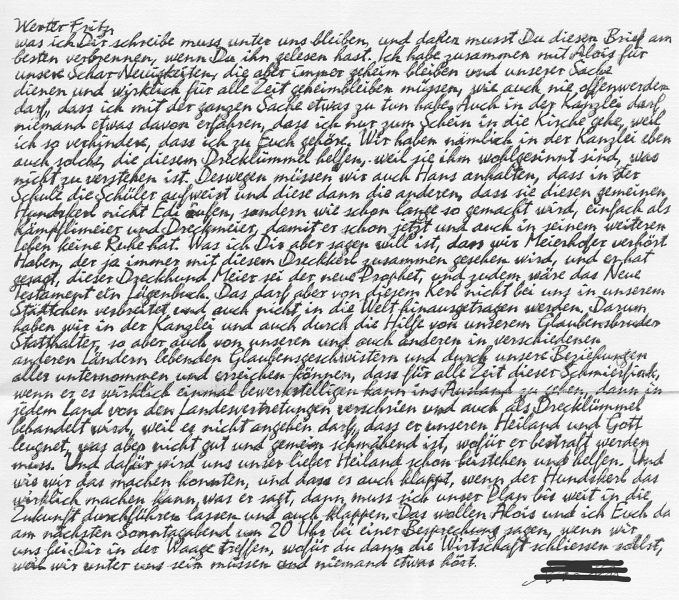 Werter Fritz,
was ich Dir schreibe muss unter uns bleiben, und daher musst Du diesen Brief am
besten verbrennen, wenn Du ihn gelesen hast. Ich habe zusammen mit Alois für
unsere Schar Neuigkeiten, die aber immer geheim bleiben und unserer Sache
dienen und wirklich für alle Zeit geheimbleiben müssen, wie auch nie offenwerden
darf, dass ich mit der ganzen Sache etwas zu tun habe. Auch in der Kanzlei darf
niemand etwas davon erfahren, dass ich nur zum Schein in die Kirche gehe, weil
ich so verhindere, dass ich zu Euch gehöre. Wir haben nämlich in der Kanzlei eben
auch solche, die diesem Drecklümmel helfen, weil sie ihm wohlgesinnt sind, was
nicht zu verstehen ist. Deswegen müssen wir auch Hans anhalten, dass in der
Schule die Schüler aufweist und diese dann die anderen, dass sie diesen gemeinen
Hundskerl nicht Edi rufen, sondern wie schon lange so gemacht wird, einfach als
Kämpflimeier und Dreckmeier, damit er schon jetzt und auch in seinem weiteren
Leben keine Ruhe hat. Was ich Dir aber sagen will ist, dass wir Meierhofer verhört
Haben, der ja immer mit diesem Dreckkerl zusammen gesehen wird, und er hat
gesagt, dieser Dreckhund Meier sei der neue Prophet, und zudem wäre das Neue
Testament ein Lügenbuch. Das darf aber von diesem Kerl nicht bei uns in unserem
Städtchen verbreitet und auch nicht in die Welt hinausgetragen werden. Darum
haben wir in der Kanzlei und auch durch die Hilfe von unserem Glaubensbruder
Statthalter, so aber auch von unseren und auch anderen in verschiedenen
anderen Ländern lebenden Glaubensgeschwistern und durch unsere Beziehungen
alles unternommen und erreichen können, dass für alle Zeit dieser Schmierfink,
wenn er es wirklich einmal bewerkstelligen kann ins Ausland zu gehen, dann in
jedem Land von den Landesvertretungen verschrien und auch als Drecklümmel
behandelt wird, weil es nicht angehen darf, dass er unseren Heiland und Gott
leugnet, was aber nicht gut und gemein schmähend ist, wofür er bestraft werden
muss. Und dafür wird uns unser lieber Heiland schon beistehen und helfen. Und
wie wir das machen konnten, und dass es auch klappt, wenn der Hundskerl das
wirklich machen kann was er sagt, dann muss sich unser Plan bis weit in die
Zukunft durchführen lassen und auch klappen. Das wollen Alois und ich Euch da
am nächsten Sonntagabend um 20 Uhr bei einer Besprechung sagen, wenn wir
uns bei Dir in der Waage treffen, wofür du dann die Wirtschaft schliessen sollst,
weil wir unter uns sein müssen und niemand etwas hört.